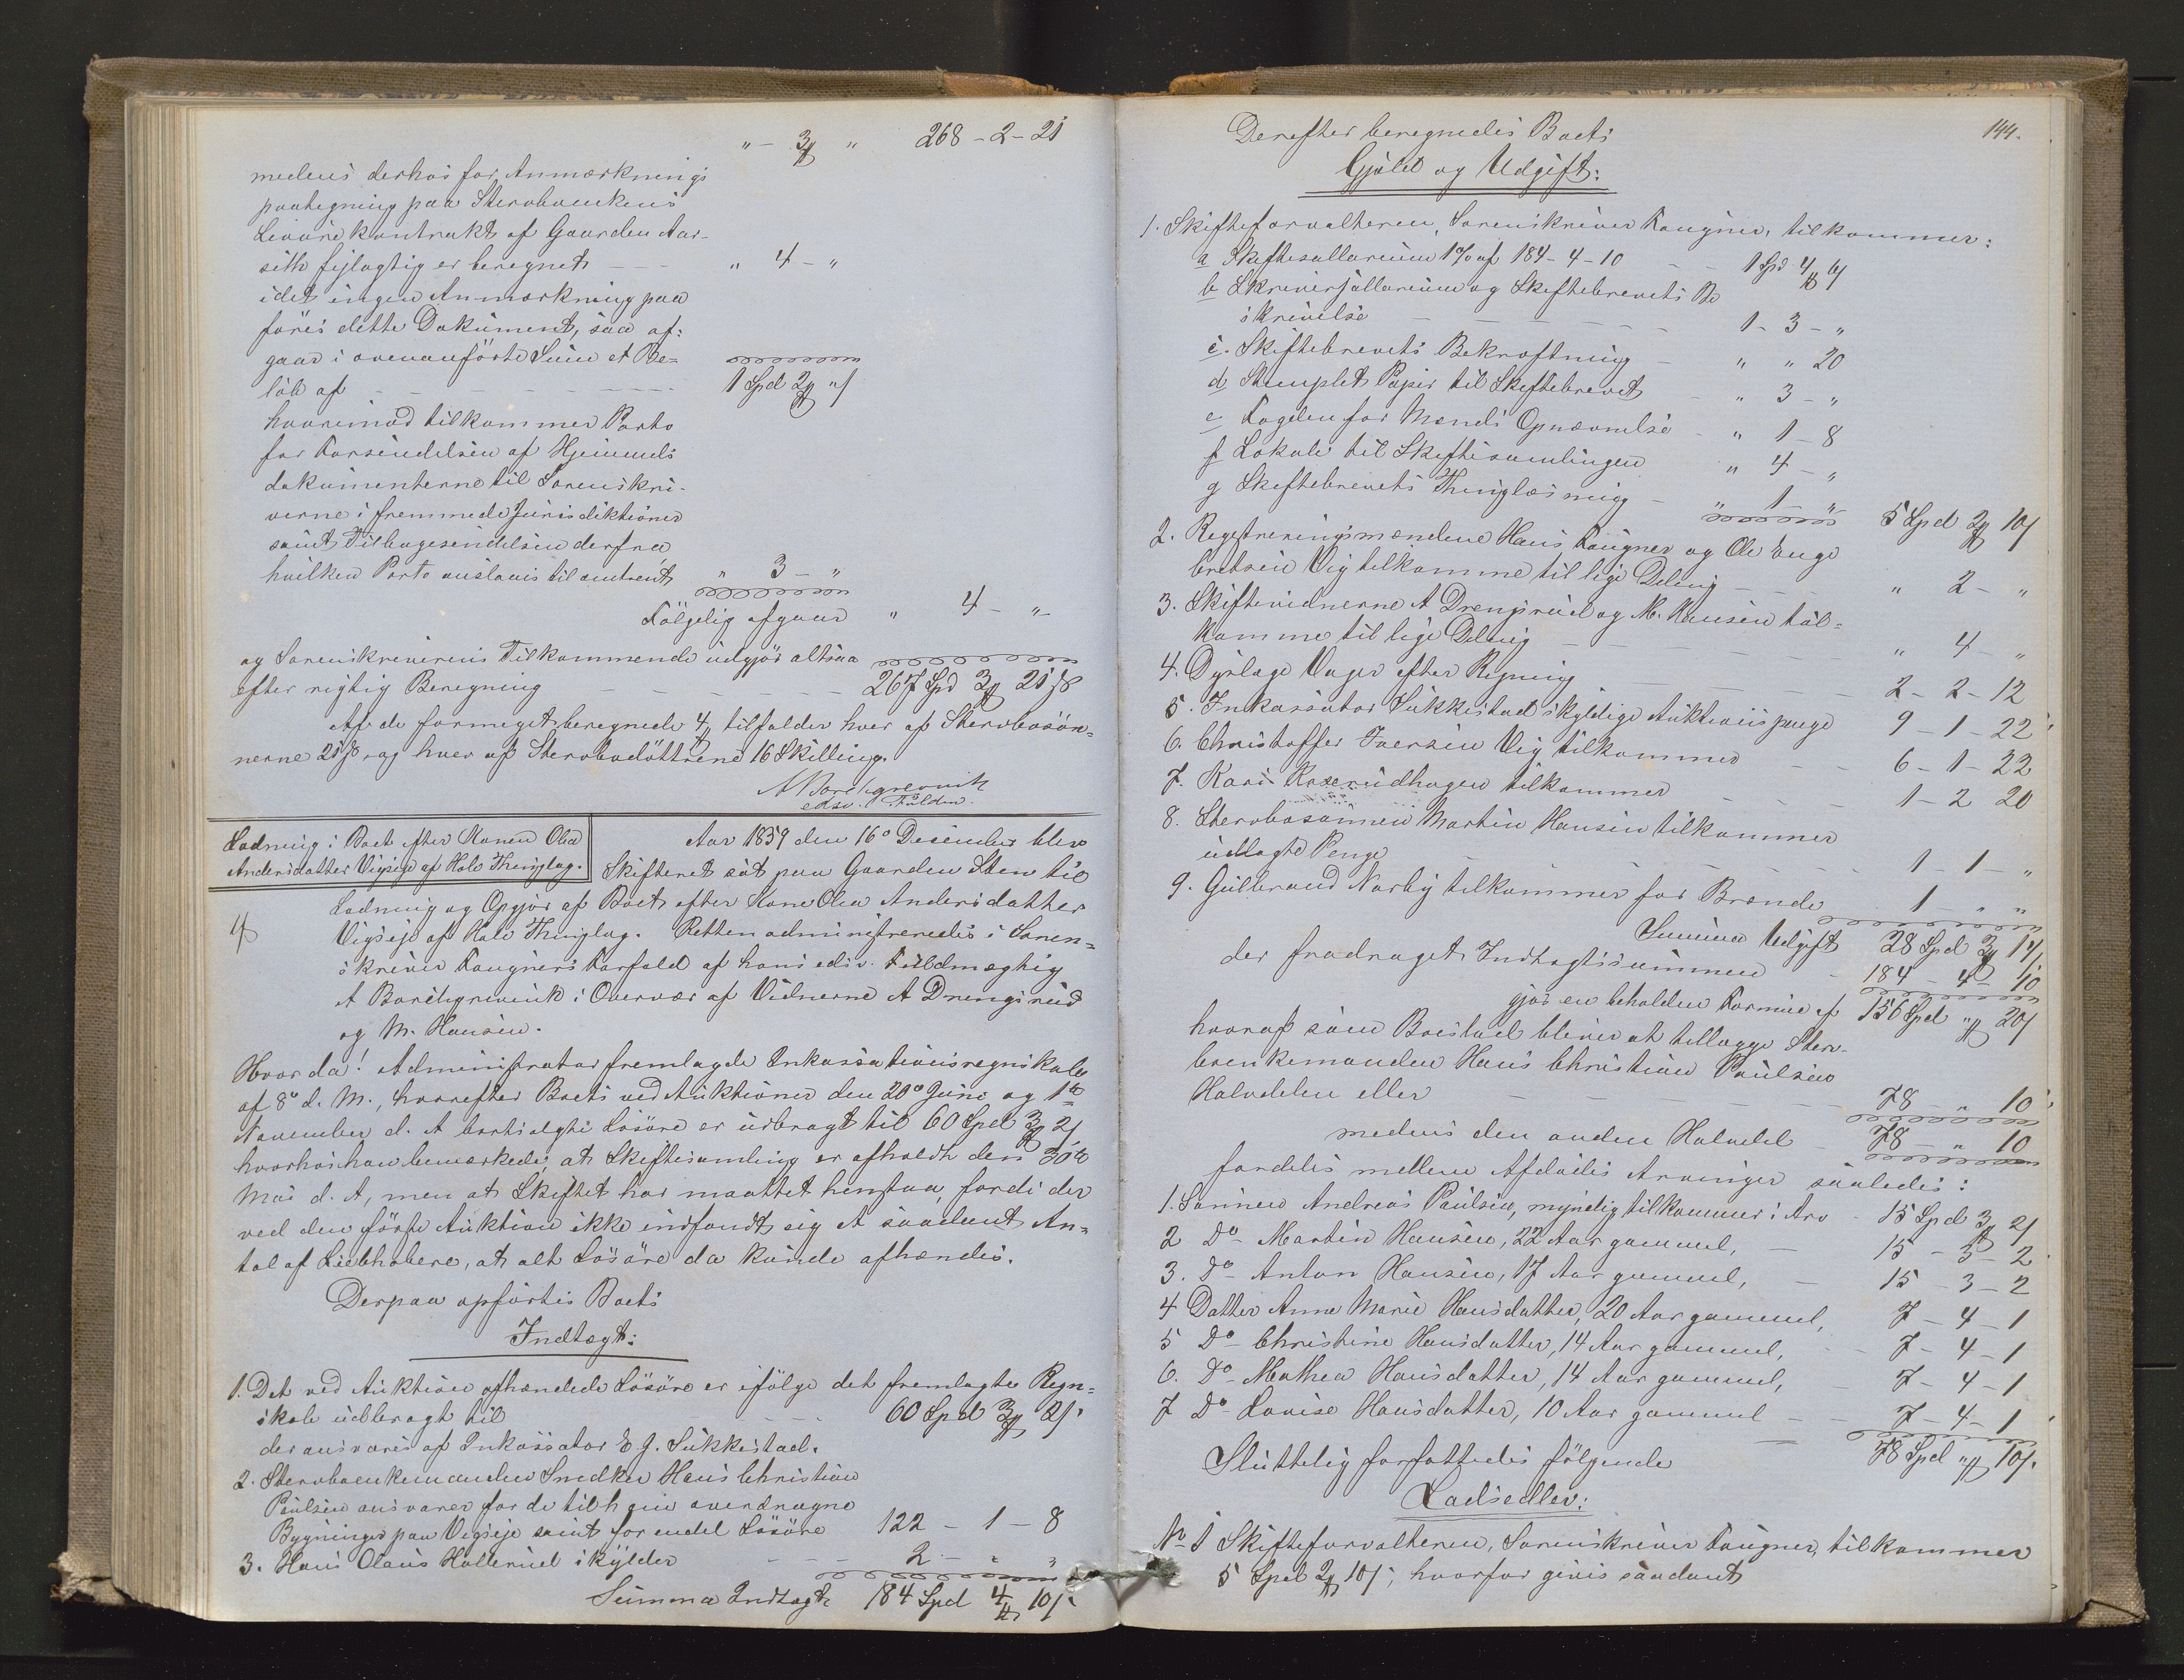 " - 3 " 268 - 2 - 21
medens derhos for Anmærknings
paategning paa Stervboenkens
Livørekontrakt af Gaarden Aar-
seth fejlagtig er beregnet - - - " 4 - "
idet ingen Anmærkning paa
føres dette Dokument, saa af-
gaar i ovenanførte Sum et Be-
løb af - - - 1 Spd 2 " /
hvorimod tilkommer Porto
for Forsendelsen af Hjemmels
dokumenterne til Sorenskri-
verne i fremmede Jurisdiktioner
samt Tilbagesendelsen derfra
hvilken Porto anslaaes til omtrent " 3 - "
Følgelig afgaar " 4 - "
og Sorenskriverens Tilkommende udgjør altsaa
efter rigtig Beregning - - - 267 Spd 3 21 ß
Af de formeget beregnede 4 tilfalder hver af Stervbosøn-
nerne 21 ß og hver af Stervbodøttrene 16 Skilling.
A Borchgrevink
edsv. Fuldm.
Lodning i Boet efter Konen Olea
Andersdatter Vigseje af Hole Thinglag.
Aar 1859 den 16de December blev
Skifteret sat paa Gaarden Sten til
Lodning og Opgjør af Boet efter Kone Olea Andersdatter
Vigseje af Hole Thinglag. Retten administreredes i Soren-
skriver Fougners Forfald af hans edsv. Fuldmægtig
A Borchgrevink i Overvær af Vidnerne A Drengsrud
og M. Hansen.
Hvorda! Administrator fremlagde Inkassationsregnskabet
af 8de d. M., hvorefter Boets ved Auktioner den 20de Juni og 1ste
November d. A bortsolgte Løsøre er udbragt til 60 Spd 3 2/
hvorhos han bemærkede, at Skiftesamling er afholdt den 30te
Mai d. A, men at Skiftet har maattet henstaa, fordi der
ved den første Auktion ikke indfandt sig et saadant An-
tal af Liebhabere, at alt Løsøre da kunde afhændes.
Derpaa opførtes Boets
Indtægt:
1. Det ved Auktion afhændede Løsøre er ifølge det fremlagte Regn-
skab udbragt til - - - 60 Spd 3 2/
der ansvares af Inkassator E G. Sukkestad.
2. Stervboenkemanden Snedker Hans Christian
Paulsen ansvarer for de til ham overdragne
Bygninger paa Vigseje samt for endel Løsøre 122 - 1 - 8
3. Hans Olaus Hollerud skylder - - - 2 - " "
Summa Indtægt 184 Spd 4 10/
144.
Derefter beregnedes Boets
Gjæld og Udgift:
1. Skifteforvalteren, Sorenskriver Fougner, tilkommer:
a Skiftesallarium 1% af 184 - 4 - 10 - - 1 Spd 4 4/
b Skriversallarium og Skiftebrevets Be
skrivelse - - - 1 - 3 - "
c. Skiftebrevets Bekræftning - " " 20
d Stemplet Papir til Skiftebrevet - " 3 - "
e Fogden for Mænds Opnævnelse - " 1 - 8
f Lokale til Skiftesamlingen " 4 - "
g Skiftebrevets Thinglæsning - " 1 - " 5 Spd 2 10/
2. Registreringsmændene Hans Fougner og Ole Enge
bretsen Vig tilkomme til lige Deling - - - " 2 - "
3. Skiftevidnerne A Drengsrud og M. Hansen til-
komme til lige Deling - - - " 4 - "
4. Dyrlæge Unger efter Regning - - - 2 - 2 - 12
5. Inkassator Sukkestad skyldige Auktionspenge 9 - 1 - 22
6. Christoffer Iversen Vig tilkommer - - 6 - 1 - 22
7. Kari Roserudhagen tilkommer - - - 1 - 2 20
8. Stervbosønnen Martin Hansen tilkommer
udlagte Penge - - - 1 - 1 - "
9. Gulbrand Norby tilkommer for Brænde 1 - " "
Summa Udgift 28 Spd 3 14/
der fradraget Indtægtssummen - 184 - 4 - 10
gjør en beholden Formue af 156 Spd " 20/
hvoraf som Boeslod bliver at tillægge Sterv-
boenkemanden Hans Christian Paulsen
Halvdelen eller - - - 78 - " 10
medens den anden Halvdel - 78 - " 10
fordeles mellem Afdødes Arvinger saaledes:
1. Sønnen Andreas Paulsen, myndig tilkommer i Arv - 15 Spd 3 2/
2 Do - Martin Hansen, 22 Aar gammel, - 15 - 3 - 2
3. Do - Anton Hansen, 17 Aar gammel, - 15 - 3 - 2
4 Datter Anne Marie Hansdatter, 20 Aar gammel, 7 - 4 - 1
5 Do - Christine Hansdatter, 14 Aar gammel, - 7 - 4 - 1
6. Do - Mathea Hansdatter, 14 Aar gammel, - 7 - 4 - 1
7 Do - Lovise Hansdatter, 10 Aar gammel - - 7 - 4 - 1
78 Spd " 10/
Sluttelig forfattedes følgende
Lodsedler:
No 1 Skifteforvalteren, Sorenskriver Fougner, tilkommer
5 Spd 2 10/, hvorfor gives saadant